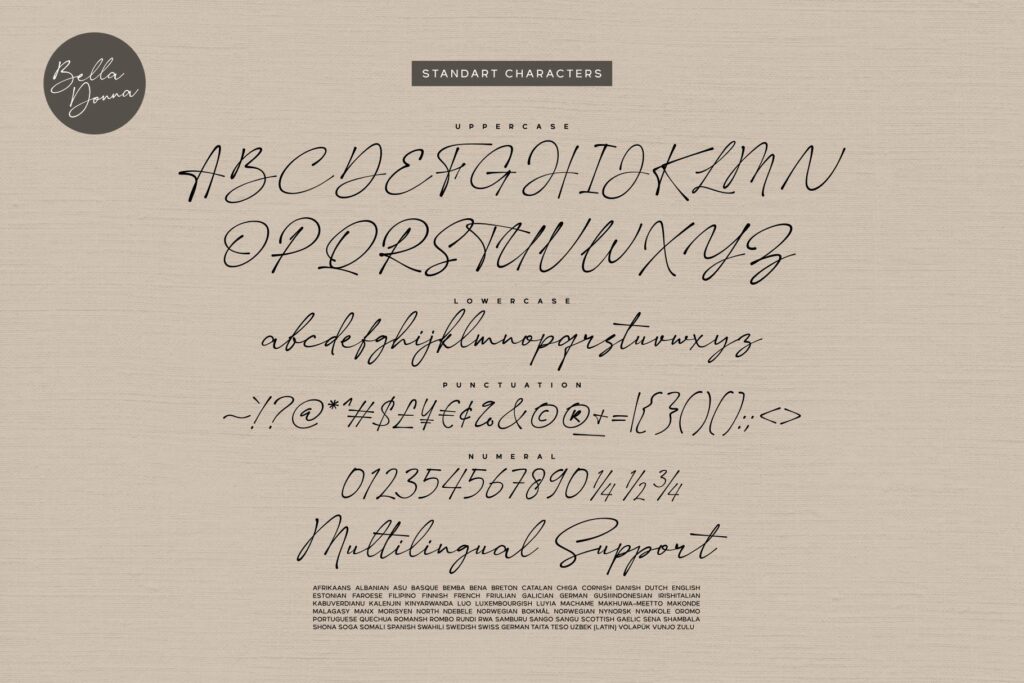 Bella
Donna
STANDART CHARACTERS
UPPERCASE
ABCDEFGHIJKLMN
OPQRSTUVWXYZ
LOWERCASE
abcdefghijklmnopqrstuvwxyz
PUNCTUATION
~`!?@*^#$£¥€¢%&©®±=|{}()[]:;<>
NUMERAL
01235454567890¼½¾
Multilingual Support
AFRIKAANS ALBANIAN ASU BASQUE BEMBA BENA BRETON CATALAN CHIGA CORNISH DANISH DUTCH ENGLISH
ESTONIAN FAROESE FILIPINO FINNISH FRENCH FRIULIAN GALICIAN GERMAN GUSIINDONESIAN IRISHITALIAN
KABUVERDIANU KALENJIN KINYARWANDA LUO LUXEMBOURGISH LUYIA MACHAME MAKHUWA-MEETTO MAKONDE
MALAGASY MANX MORISYEN NORTH NDEBELE NORWEGIAN BOKMÅL NORWEGIAN NYNORSK NYANKOLE OROMO
PORTUGUESE QUECHUA ROMANSH ROMBO RUNDI RWA SAMBURU SANGO SANGU SCOTTISH GAELIC SENA SHAMBALA
SHONA SOGA SOMALI SPANISH SWAHILI SWEDISH SWISS GERMAN TAITA TESO UZBEK (LATIN) VOLAPÜK VUNJO ZULU